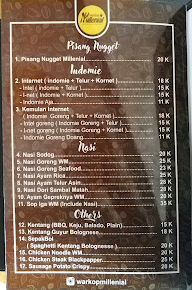 Millenial
Pisang Nugget
1. Pisang Nugget Millenial 20 K
Indomie
2. Internet ( indomie + Telur + Kornet ) 18 K
- Intel ( indomie + Telur ) 15 K
- I-net ( Indomie + Kornet ) 15 K
- Indomie Aja 11 K
3. Kemulan Internet
( Indomie Goreng + Telur + Kornet ) 18 K
- Intel goreng ( Indomie Goreng + Telur ) 15 K
- I-net goreng ( Indomie Goreng + Kornet ) 15 K
- Indomie Goreng Doang 11 K
Nasi
4. Nasi Sodog 20 K
5. Nasi Goreng WM 25 K
6. Nasi Goreng Seafood 23 K
7. Nasi Ayam Rica 25 K
8. Nasi Ayam Telur Asin 30 K
9. Nasi Dori Sambal Matah 20 K
10. Ayam Gepreknya WM 20 K
11. Sop Iga WM (Include Nasi) 35 K
Others
12. Kenteng (BBQ, Keju, Balado, Plain) 15 K
13. Kenteng Guyur Bolognase
14. SepakBol
( Spaghetti Kentang Bolognesse )
15. Chicken Noodle WM
16. Chicken Steak Blackpepper
17. Sausage Potato Crispy 20 K
warkopmillenial